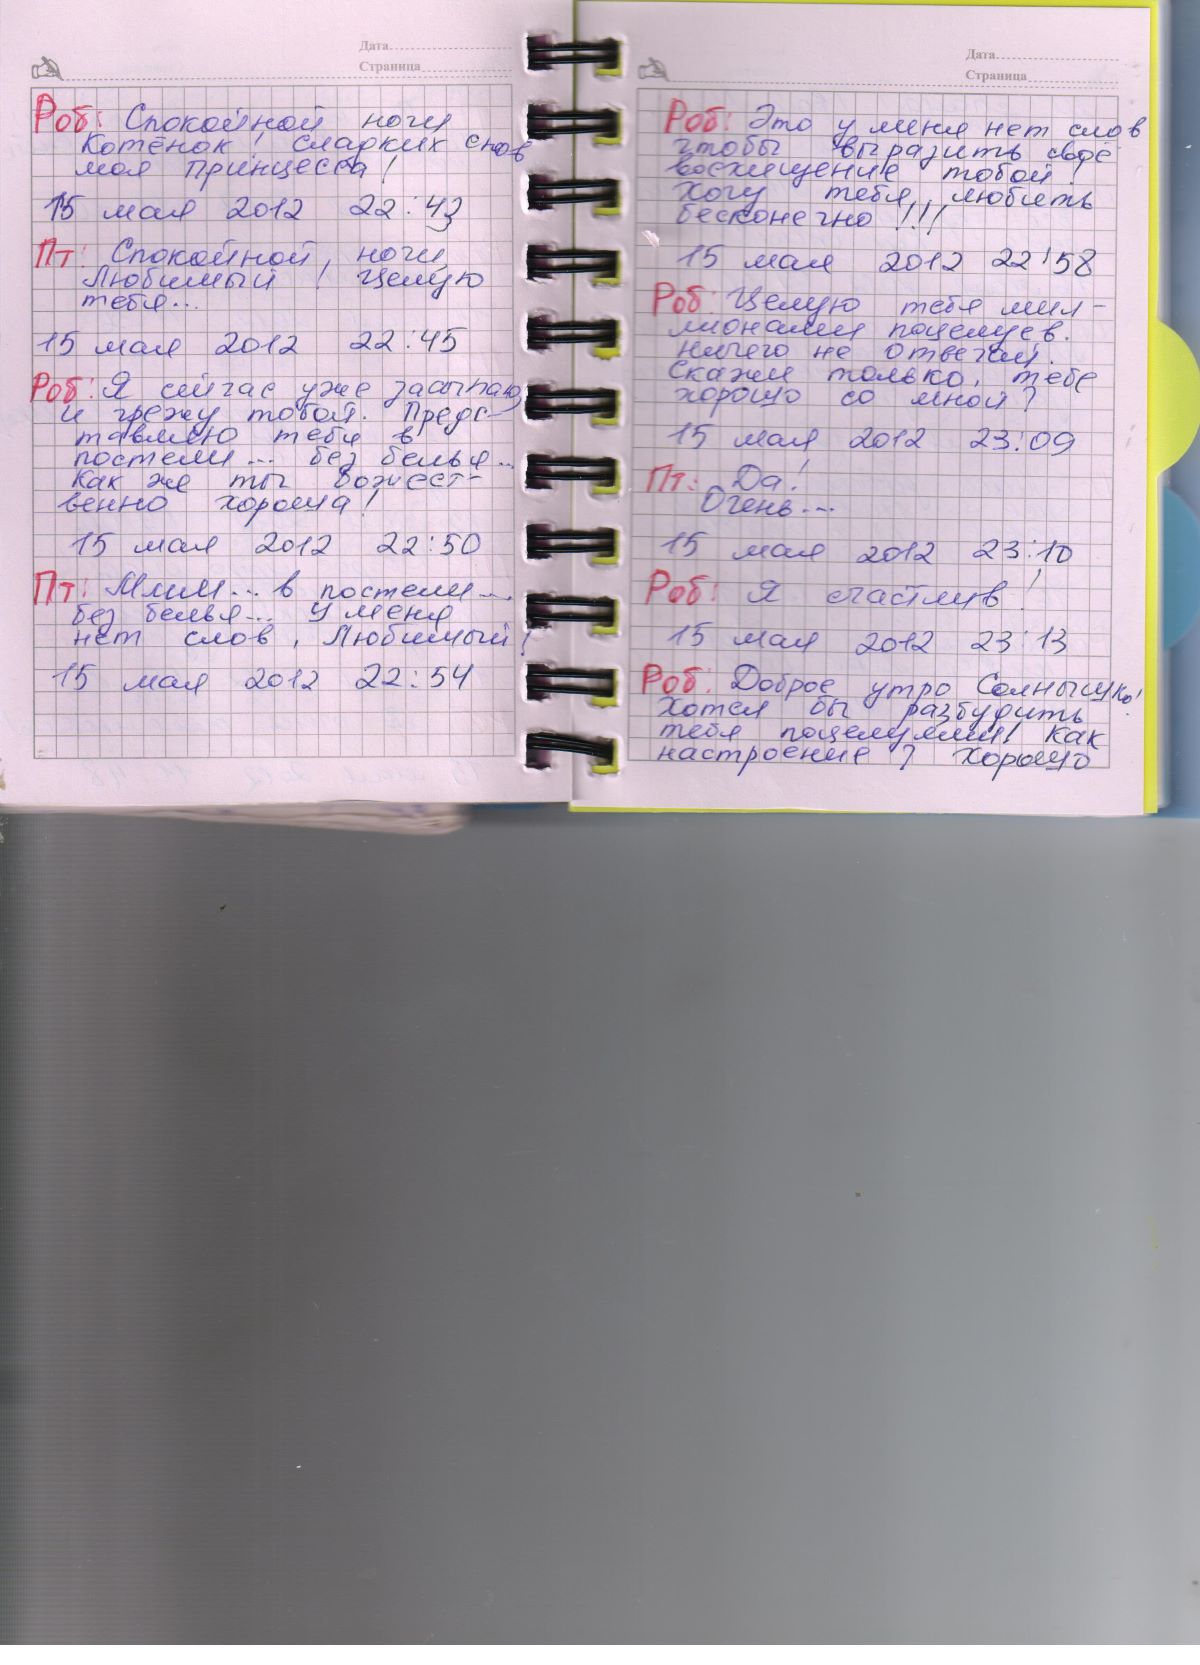 Дата
Страница
Роб: Спокойной ночи
Котёнок! Сладких снов
моя принцесса!
15 мая 2012 22:43
Пт: Спокойной, ночи,
Любимый! Целую
тебя...
15 мая 2012 22:45
Роб: Я сейчас уже засыпаю
и грежу тобой. Предс-
тавляю тебя в
постели... без белья...
Как же ты божест-
венно хороша!
15 мая 2012 22:50
Пт: Ммм... в постели...,
без белья... У меня
нет слов, Любимый!
15 мая 2012 22:54
Дата
Страница
Роб: Это у меня нет слов
чтобы выразить своё
восхищение тобой!
Хочу тебя любить
бесконечно!!!
15 мая 2012 22:58
Роб: Целую тебя мил-
лионами поцелуев.
Ничего не отвечай.
Скажи только, тебе
хорошо со мной?
15 мая 2012 23:09
Пт: Да!
Очень...
15 мая 2012 23:10
Роб: Я счастлив!
15 мая 2012 23:13
Роб: Доброе утро Солнышко!
Хотел бы разбудить
тебя поцелуями! Как
настроение? Хорошо